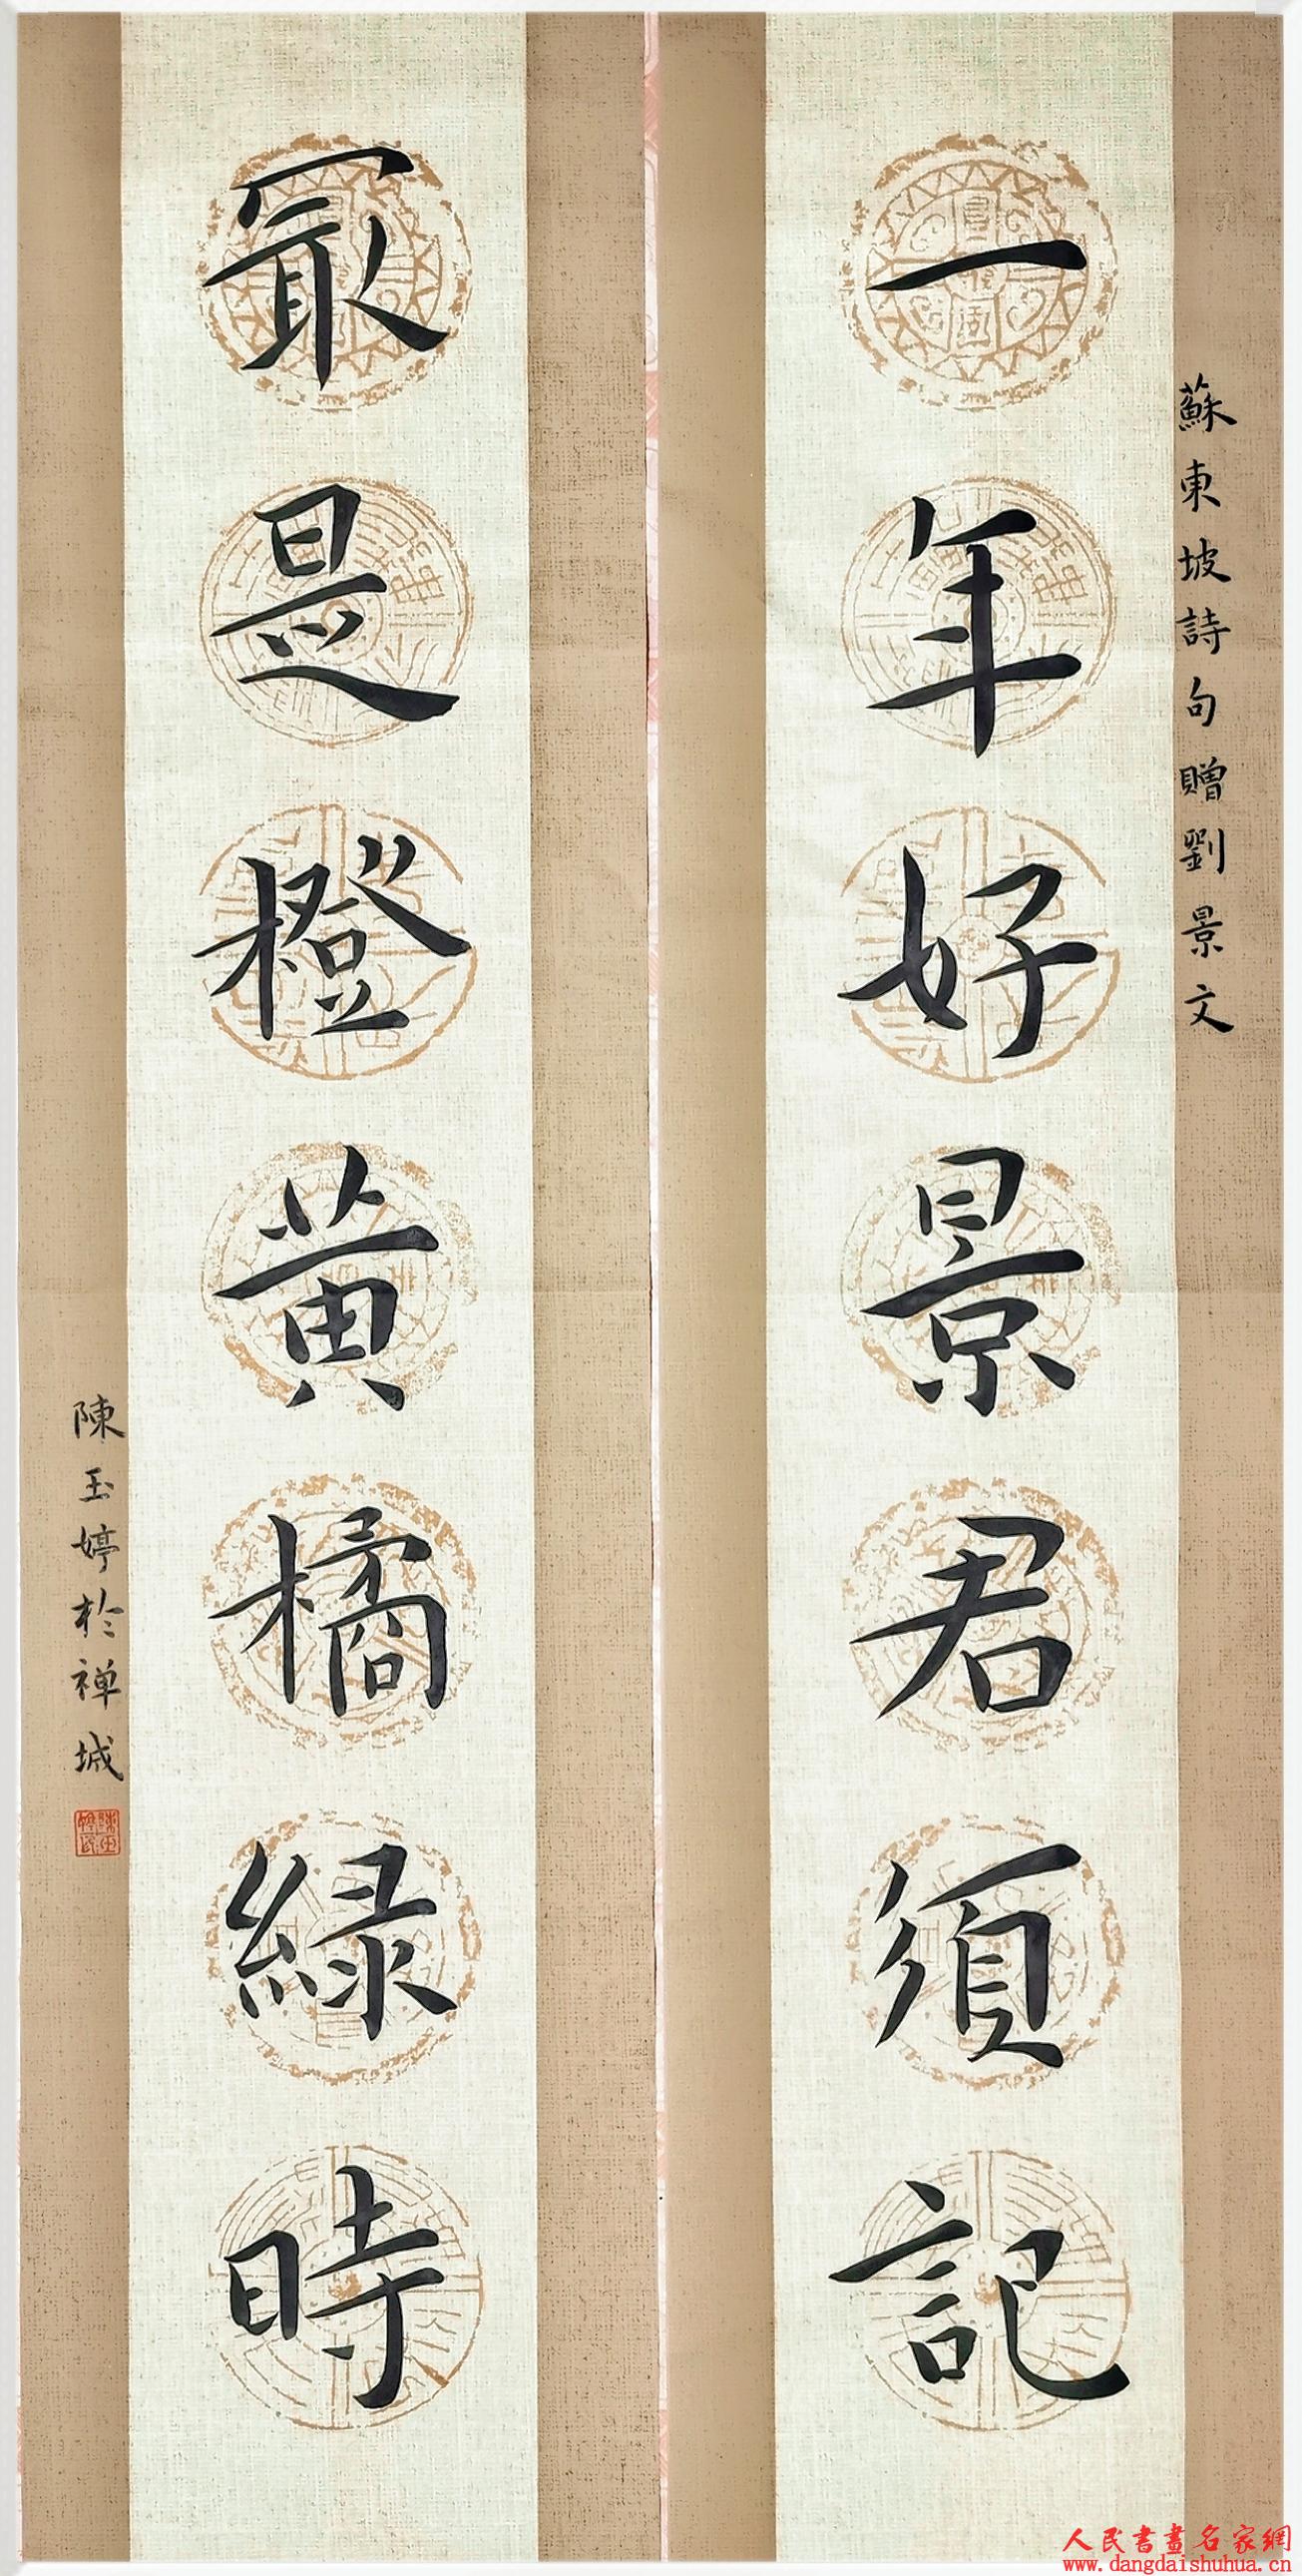 蘇東坡詩句贈劉景文
一年好景君須記
冣是橙黃橘緑時
陳玉婷於禅城
人民書畫名家網
www.dangdaishuhua.cn